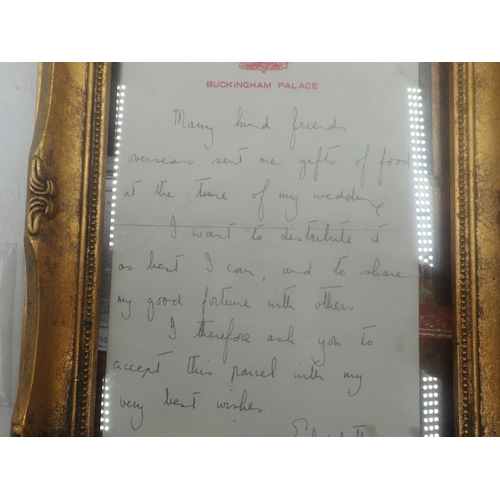 BUCKINGHAM PALACE
Many kind friends
overseas sent me gifts of food
at the time of my wedding
I want to distribute it
as best I can, and to share
my good fortune with others
I therefore ask you to
accept this parcel with my
very best wishes.